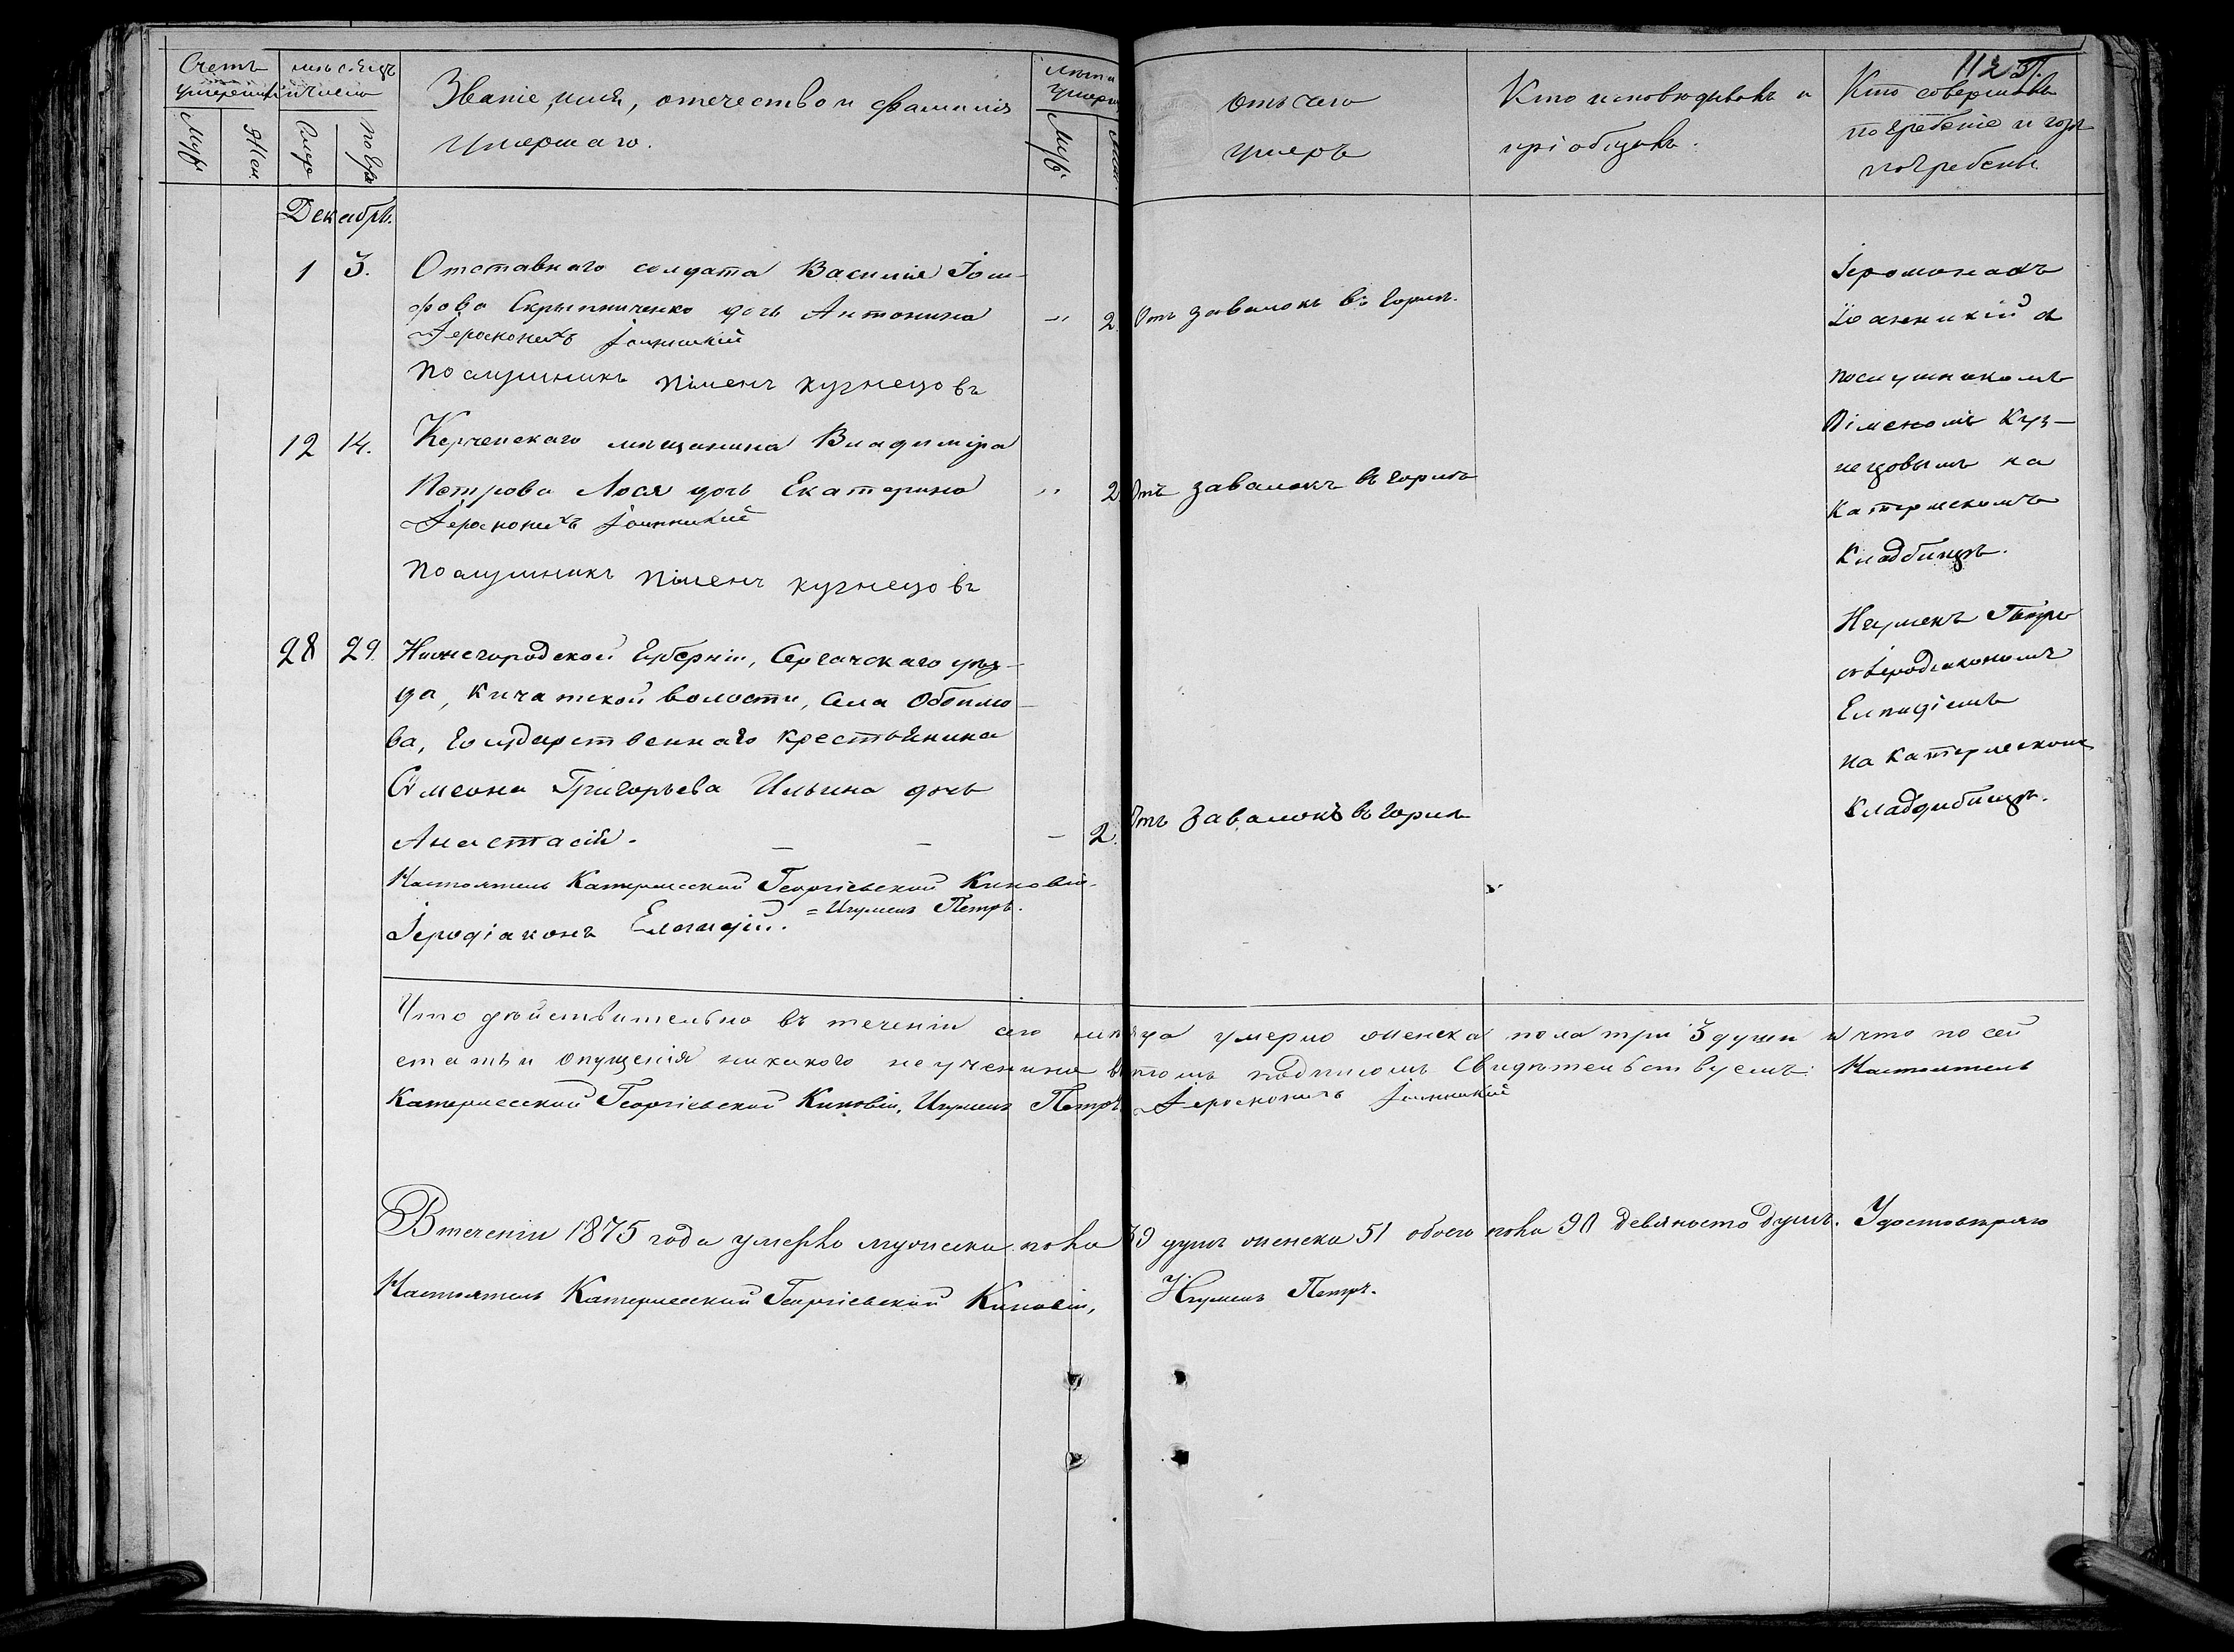 112
Счетъ
умершихъ
мѣсяцъ
и число
Званіе, имя, отечество и фамилія
умершаго.
Лѣта
умерш
отъ чего
умеръ
Кто исповѣдывалъ и
пріобщалъ.
Кто совершалъ
погребеніе и гдѣ
погребены.
Муж
Жен
Смер
Погр
Муж
Жен
Декабрь.
1 3. Отставнаго солдата Василія Іоси-
фова Скрыпниченко дочь Антонина — " 2. Отъ завалокъ въ горлѣ.
Іеромонахъ Іоанникій
Послушникъ Пименъ Кузнецовъ
Іеромонахъ
Іоанникій съ
послушникомъ
Піменомъ Куз-
нецовымъ на
Катерлескомъ
Кладбищѣ.
12 14. Керченскаго мѣщанина Владиміра
Петрова Лося дочь Екатерина " 2 Отъ завалокъ въ горлѣ
Іеромонахъ Іоанникій
Послушникъ Пименъ Кузнецовъ
28 29. Нижегородской Губерніи, Сергачскаго уѣз-
да, Кичатской волости, села
ва, Государственнаго крестьянина
Сѵмеона Григорьева Ильина дочь
Анастасія. — — — 2. Отъ завалокъ въ горлѣ
Игуменъ Петръ
съ Іеродіакономъ
Елпидіемъ
на Катерлеском
Кладдбищѣ.
Настоятель Катерлесской Георгіевской Киновіи
= Игуменъ Петръ.
Іеродіаконъ Елпидій.
Что дѣйствительно въ теченіи сего мѣсяца умерло женска пола три 3 души и что по сей
статьи опущенія никакого не учинено въ томъ подписомъ Свидѣтельствуемъ: Настоятель
Катерлесской Георгіевской Киновіи, Игуменъ Петръ. Іеромонахъ Іоанникій
Втеченіи 1875 года умерло мужска пола 39 душъ женска 51 обоего пола 90 девяносто душъ. Удостовѣряю
Настоятель Катерлесской Георгіевской Киновіи, Игуменъ Петръ.